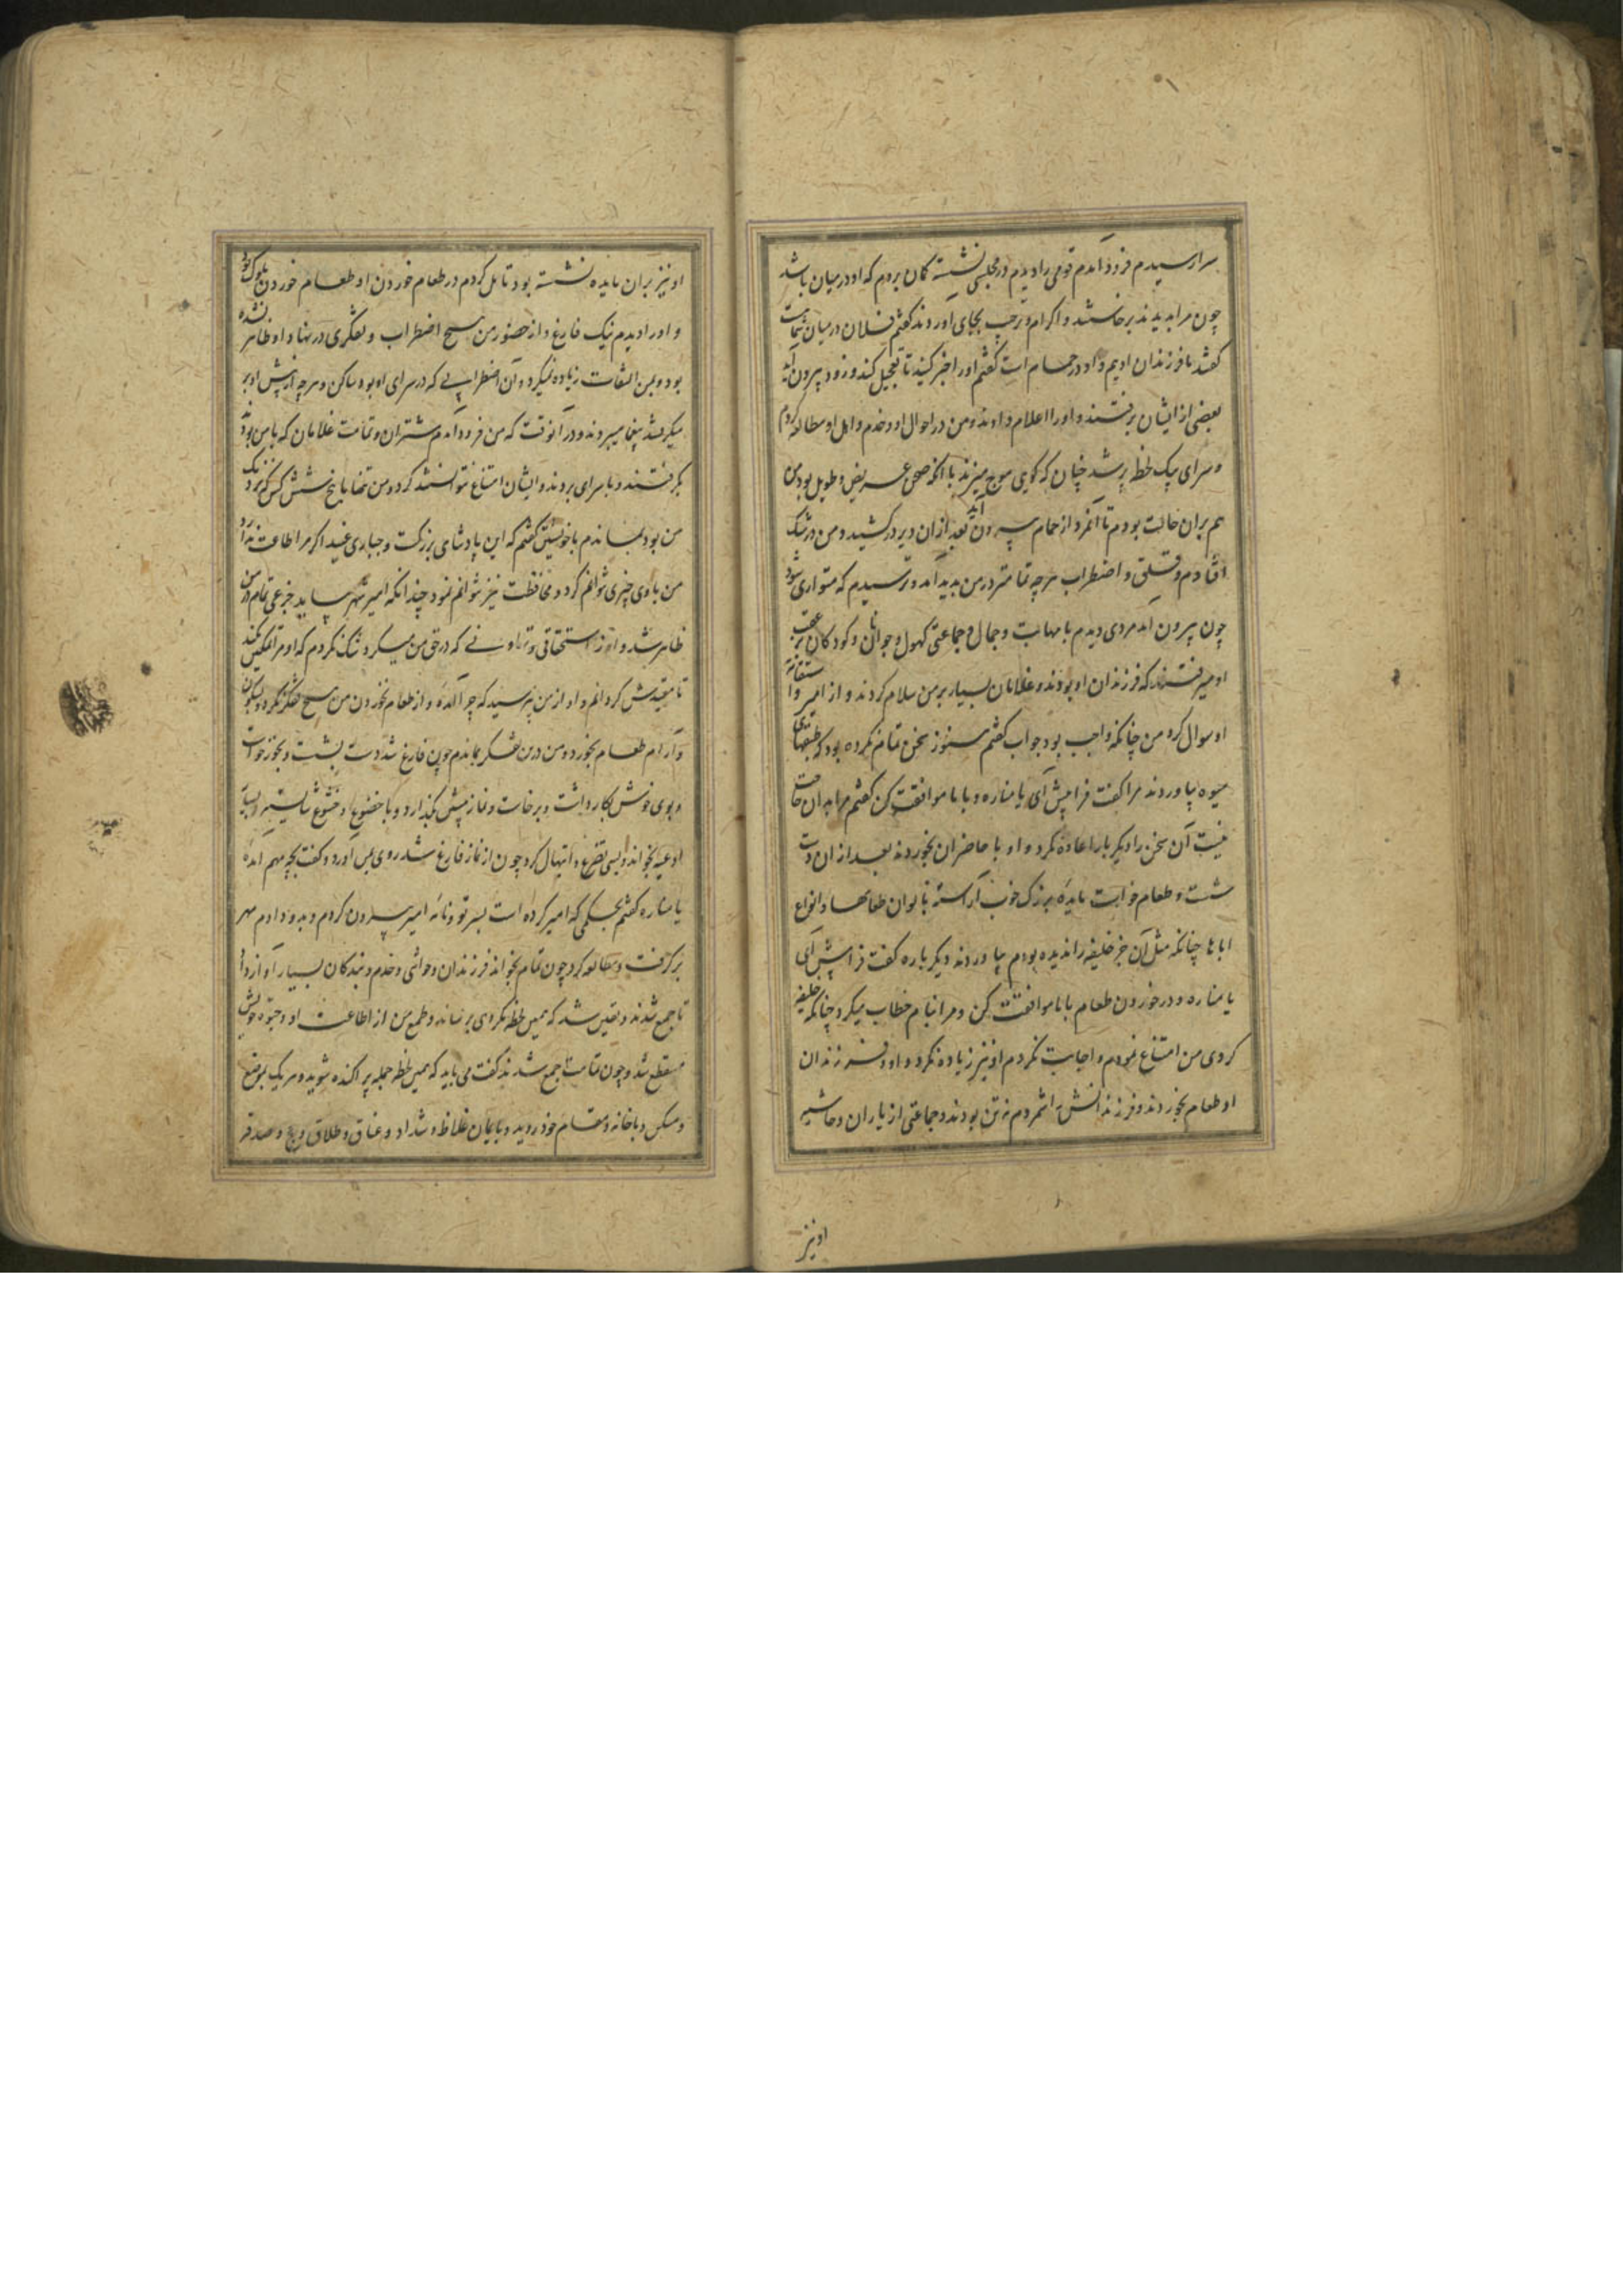 سرا رسیدم فرود آمدم قومی را دیدم در مجلسی نشسته گمان بردم که او در میان باشد
چون مرا بدیدند برخاستند و اکرام و ترحیب بجای آوردند گفتم فلان در میان شماست
گفتند ما فرزندان اوییم و او در حمام است گفتم او را خبر کنید تا تعجیل کند و زود بیرون آید
بعضی از ایشان برفتند و او را اعلام دادند و من در احوال او و خدم و اهل او مطالعه کردم
و سرای یک لحظه پر شد چنان که گویی موج میزند با آنکه صحنی عریض و طویل بود من
هم بران حالت بودم تا آنمرد از حمام بیرون آید بعد از ان دیر درکشید و من در شک
افتادم و قلق و اضطراب هرچه تمامتر در من پدید آمد و ترسیدم که متواری شود
چون بیرون آمد مردی دیدم با مهابت و جمال و جماعتی کهول و جوانان و کودکان بر عقب
او میرفتند که فرزندان او بودند و غلامان بسیار بر من سلام کردند و از امیر و استقامت
او سوال کرد من چنانکه واجب بود جواب گفتم هنوز سخن تمام نکرده بود که طبقهای
میوه بیاوردند مرا گفت فرا پیش آی یا مناره و با ما موافقت کن گفتم مرا بدان حاجت
نیست آن سخن را دیگر بار اعاده نکرد و او با حاضران بخوردند بعد از ان دست
شست و طعام خواست مایدهٔ بزرگ خوب آراسته بالوان طعامها و انواع
اباها چنانکه مثل آن جز خلیفه را ندیده بودم بیاوردند دیگر باره گفت فرا پیش آی
یا مناره و در خوردن طعام با ما موافقت کن و مرا بنام خطاب میکرد چنانکه خلیفه
کردی من امتناع نمودم و اجابت نکردم او نیز زیاده نکرد و او و فرزندان
او طعام بخوردند و فرزندانش را شمردم نه تن بودند و جماعتی از یاران و حاشیه
او نیز
او نیز بران مایده نشسته بود تامل کردم در طعام خوردن او طعام خوردن ملوک
و او را دیدم نیک فارغ و از حضور من هیچ اضطراب و تفکری در نهاد او ظاهر نشده
بود و بمن التفات زیاده نمیکرد و آن اضطرابی که در سرای او بود ساکن و هرچه از پیش او بر
میگرفتند بیغما میبردند و در آنوقت که من فرود آمدم شتران و تمامت غلامان که با من بودند
بگرفتند و با سرای بردند و ایشان امتناع نتوانستند کرد و من تنها با پنج شش کس که نزدیک
من بود بماندم با خویشتن گفتم که این پادشاهی بزرگست و جباری عنید اگر مرا اطاعت ندارد
من با وی چیزی نتوانم کرد و محافظت نیز نتوانم نمود چندانکه امیر شهر بیاید جزعی تمام در من
ظاهر شد و از استحقاقی و تهاونی که در حق من میکرد شک نکردم که او مرا تمکین نکند
تا مقیدش گردانم و او از من نپرسید که چرا آمدهٔ و از طعام نخوردن من هیچ فکر نکرد و بسکون
و آرام طعام بخورد و من درین تفکر بماندم چون فارغ شد دست بشست و بخور خواست
و بوی خوش بکار داشت و برخاست و نماز پیشین بگذارد و با خضوع و خشوع شایسته و بسیار
ادعیه بخواند و بسی تضرع و ابتهال کرد چون از نماز فارغ شد روی بمن آورد و گفت بچه مهم آمدهٔ
یا مناره گفتم بحکمی که امیر کرده است بسر تو و نامه امیر بیرون کردم و بدو دادم مهر
برگرفت و مطالعه کرد چون تمام بخواند فرزندان و حواشی و خدم و بندگان بسیار آواز داد
تا جمع شدند و یقین شد که همین لحظه نکردی برساند و طمع من از اطاعت او و حیوة خویش
منقطع شد و چون تمامت جمع شدند گفت می باید که همین لحظه جمله پراکنده شوید و هر یک بموضع
و مسکن و با خانه و مقام خود روید و بایمان غلاظ و شداد و عتاق و طلاق و حج و صدقه